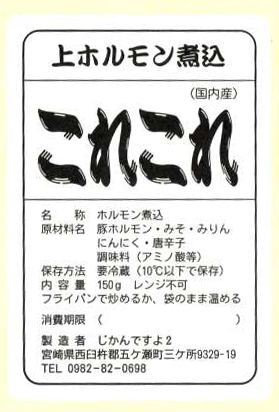 上ホルモン煮込
（国内産）
これこれ
名　　称　ホルモン煮込
原材料名　豚ホルモン・みそ・みりん
にんにく・唐辛子
調味料（アミノ酸等）
保存方法　要冷蔵（10℃以下で保存）
内 容 量　150g　レンジ不可
フライパンで炒めるか、袋のまま温める
消費期限（
製 造 者　じかんですよ2
宮崎県西臼杵郡五ケ瀬町三ケ所9329-19
TEL 0982-82-0698